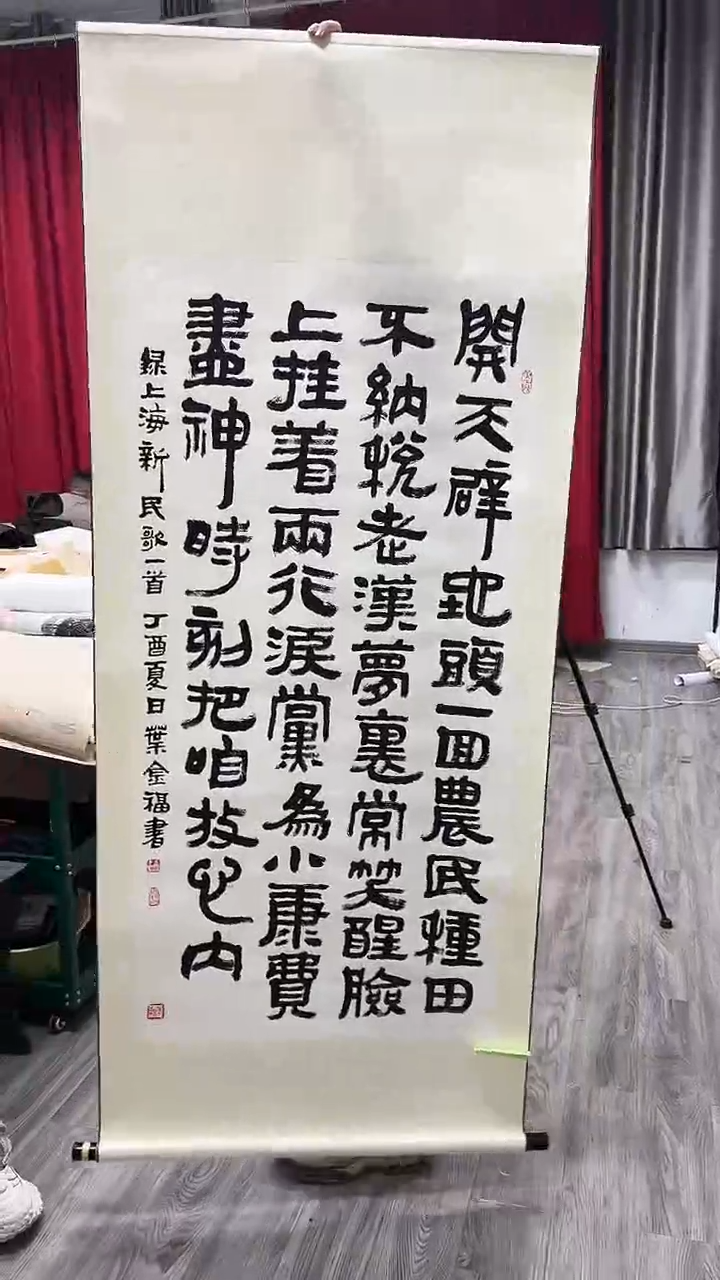 開天辟地頭一回農民種田
不納税老漢夢裏常笑醒臉
上挂着兩行淚黨為小康費
盡神時刻把咱放心内
録上海新民歌一首丁酉夏日葉金福書